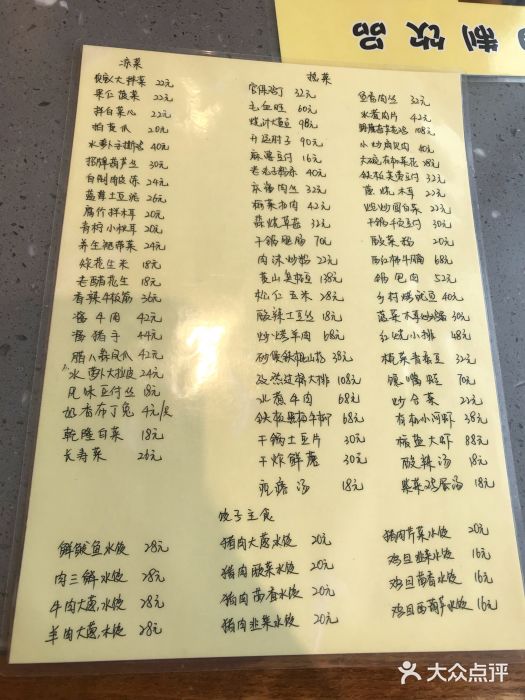 制饮品
凉菜
大拌菜 22元
果仁菠菜 22元
拌白菜心 22元
拍黄瓜 20元
水萝卜蘸酱 40元
招牌葫芦丝 30元
自制肉皮冻 24元
蓝莓土豆泥 26元
腐竹拌木耳 20元
青柠小木耳 20元
养生裙带菜 24元
炸花生米 18元
老醋花生 18元
香辣牛板筋 36元
酱牛肉 42元
酱猪手 44元
腊八蒜凤爪 42元
水萝卜大拉皮 24元
风味豆付丝 18元
奶香布丁兔 4元/只
乾隆白菜 18元
长寿菜 26元
热菜
宫保鸡丁 32元
毛血旺 60元
90元
麻婆豆付 16元
40元
京酱肉丝 32元
梅菜扣肉 42元
蒜烧草菇 32元
干锅肥肠 70元
肉沫粉 22元
黄山臭桂鱼 138元
松仁玉米 28元
酸辣土豆丝 18元
炒烤羊肉 68元
砂煲铁棍山药 38元
108元
水煮牛肉 68元
铁板黑椒牛柳 68元
干锅土豆片 30元
干炸鲜蘑 30元
疙瘩汤 18元
鱼香肉丝 32元
水煮肉片 42元
108元
小炒肉 40元
大碗有机菜花 28元
22元
葱烧木耳 22元
炝炒圆白菜 22元
干锅千页豆付 30元
酸菜粉 20元
西红柿牛腩 68元
锅包肉 52元
乡村烤豇豆 40元
30元
红烧小排 48元
橄榄菜 32元
70元
炒合菜 22元
有机小河虾 38元
椒盐大虾 88元
酸辣汤 18元
紫菜鸡蛋汤 18元
饺子主食
鲜鱿鱼水饺 28元
肉三鲜水饺 28元
牛肉大葱水饺 28元
羊肉大葱水饺 28元
猪肉大葱水饺 20元
猪肉酸菜水饺 20元
猪肉茴香水饺 20元
猪肉韭菜水饺 20元
猪肉芹菜水饺 20元
鸡旦韭菜水饺 16元
鸡旦茴香水饺 16元
鸡旦西葫芦水饺 16元
大众点评